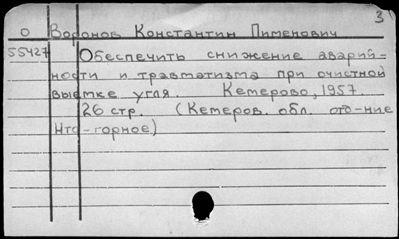 3
О Воронов Константин Пименович
55427 Обеспечить снижение аварий-
ности и травматизма при очистной
выемке угля. Кемерово, 1957.
26 стр. (Кемеров. обл. отд-ние
Нто-горное)